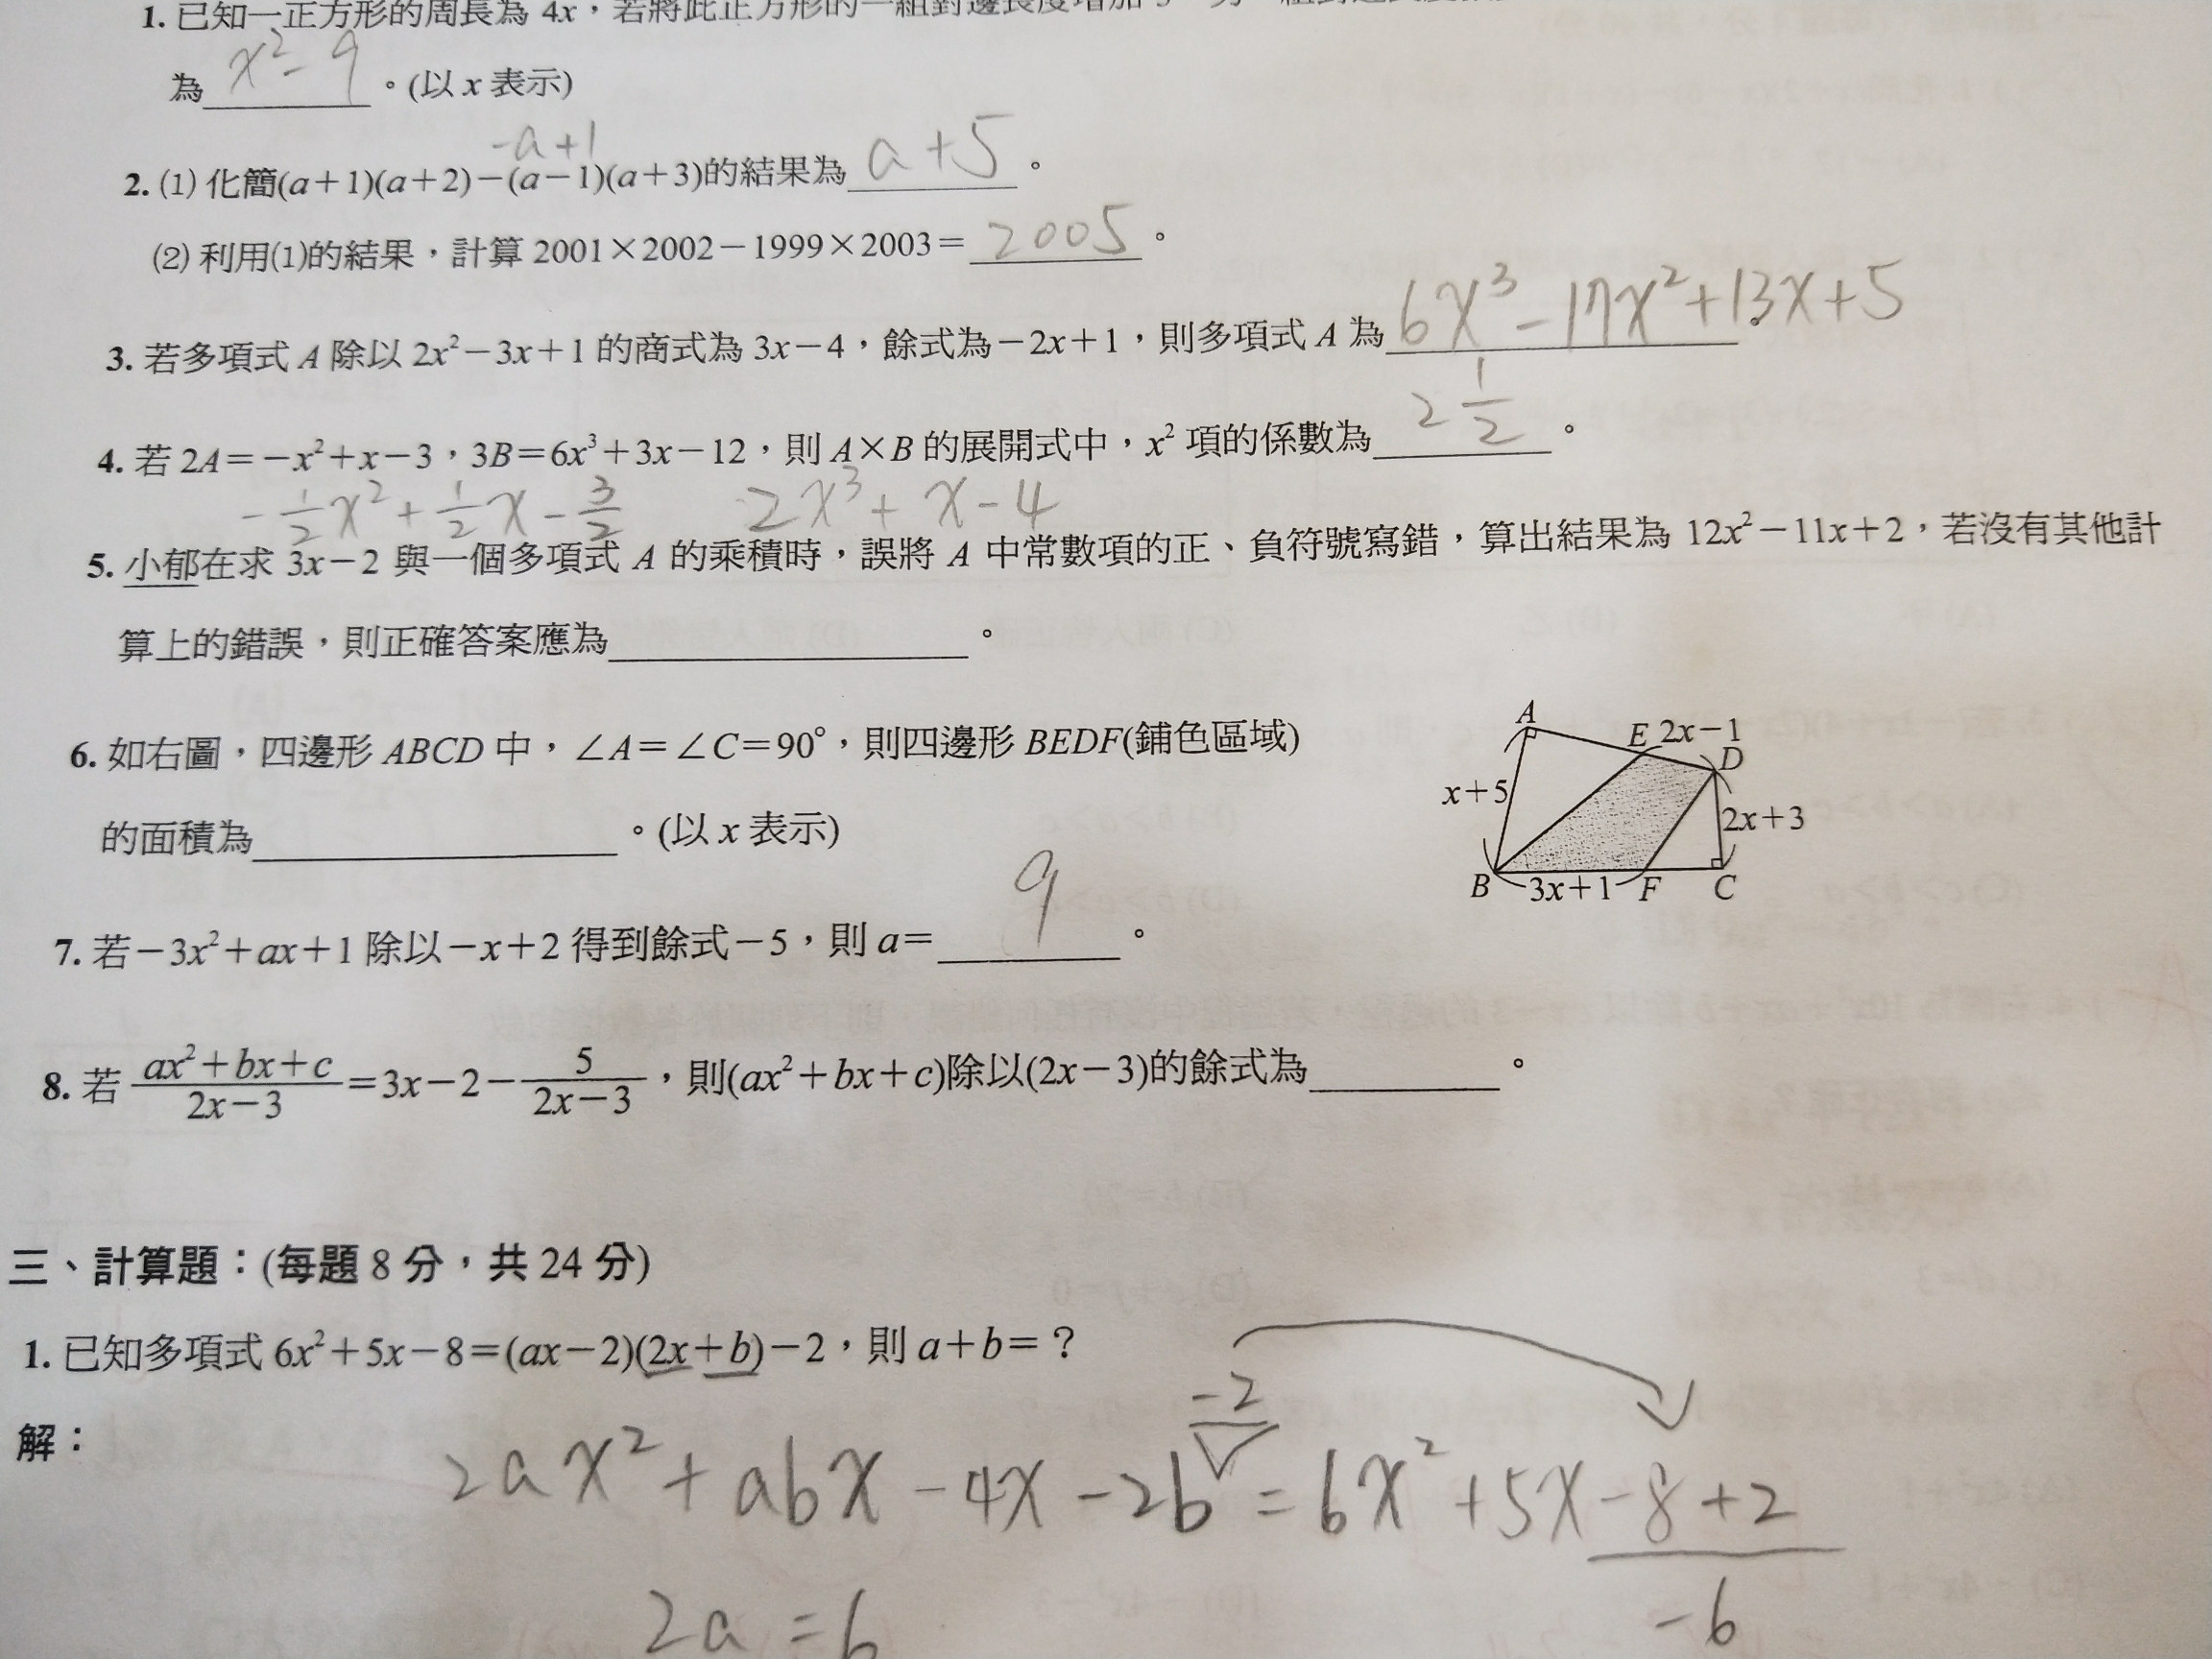 1. 已知一正方形的周長為 4x，若將此正方形的一組對邊長度增加
為 x²-9 。(以 x 表示)
-a+1
2. (1) 化簡(a+1)(a+2)－(a－1)(a+3)的結果為 a+5 。
(2) 利用(1)的結果，計算 2001×2002－1999×2003＝ 2005 。
3. 若多項式 A 除以 2x²－3x+1 的商式為 3x－4，餘式為－2x+1，則多項式 A 為 6x³-17x²+13x+5
4. 若 2A＝－x²+x－3，3B＝6x³+3x－12，則 A×B 的展開式中，x² 項的係數為 2 1/2 。
-1/2x²+1/2x-3/2 2x³+x-4
5. 小郁在求 3x－2 與一個多項式 A 的乘積時，誤將 A 中常數項的正、負符號寫錯，算出結果為 12x²－11x+2，若沒有其他計
算上的錯誤，則正確答案應為 。
6. 如右圖，四邊形 ABCD 中，∠A＝∠C＝90°，則四邊形 BEDF(鋪色區域)
的面積為 。(以 x 表示)
A
E 2x－1
D
x+5
2x+3
B 3x+1 F C
7. 若－3x²+ax+1 除以－x+2 得到餘式－5，則 a＝ 9 。
8. 若 (ax²+bx+c)/(2x－3)＝3x－2－5/(2x－3)，則(ax²+bx+c)除以(2x－3)的餘式為 。
三、計算題：(每題 8 分，共 24 分)
1. 已知多項式 6x²+5x－8＝(ax－2)(2x+b)－2，則 a+b＝？
解：
-2
2ax²+abx-4x-2b=6x²+5x-8+2
2a=6
-6